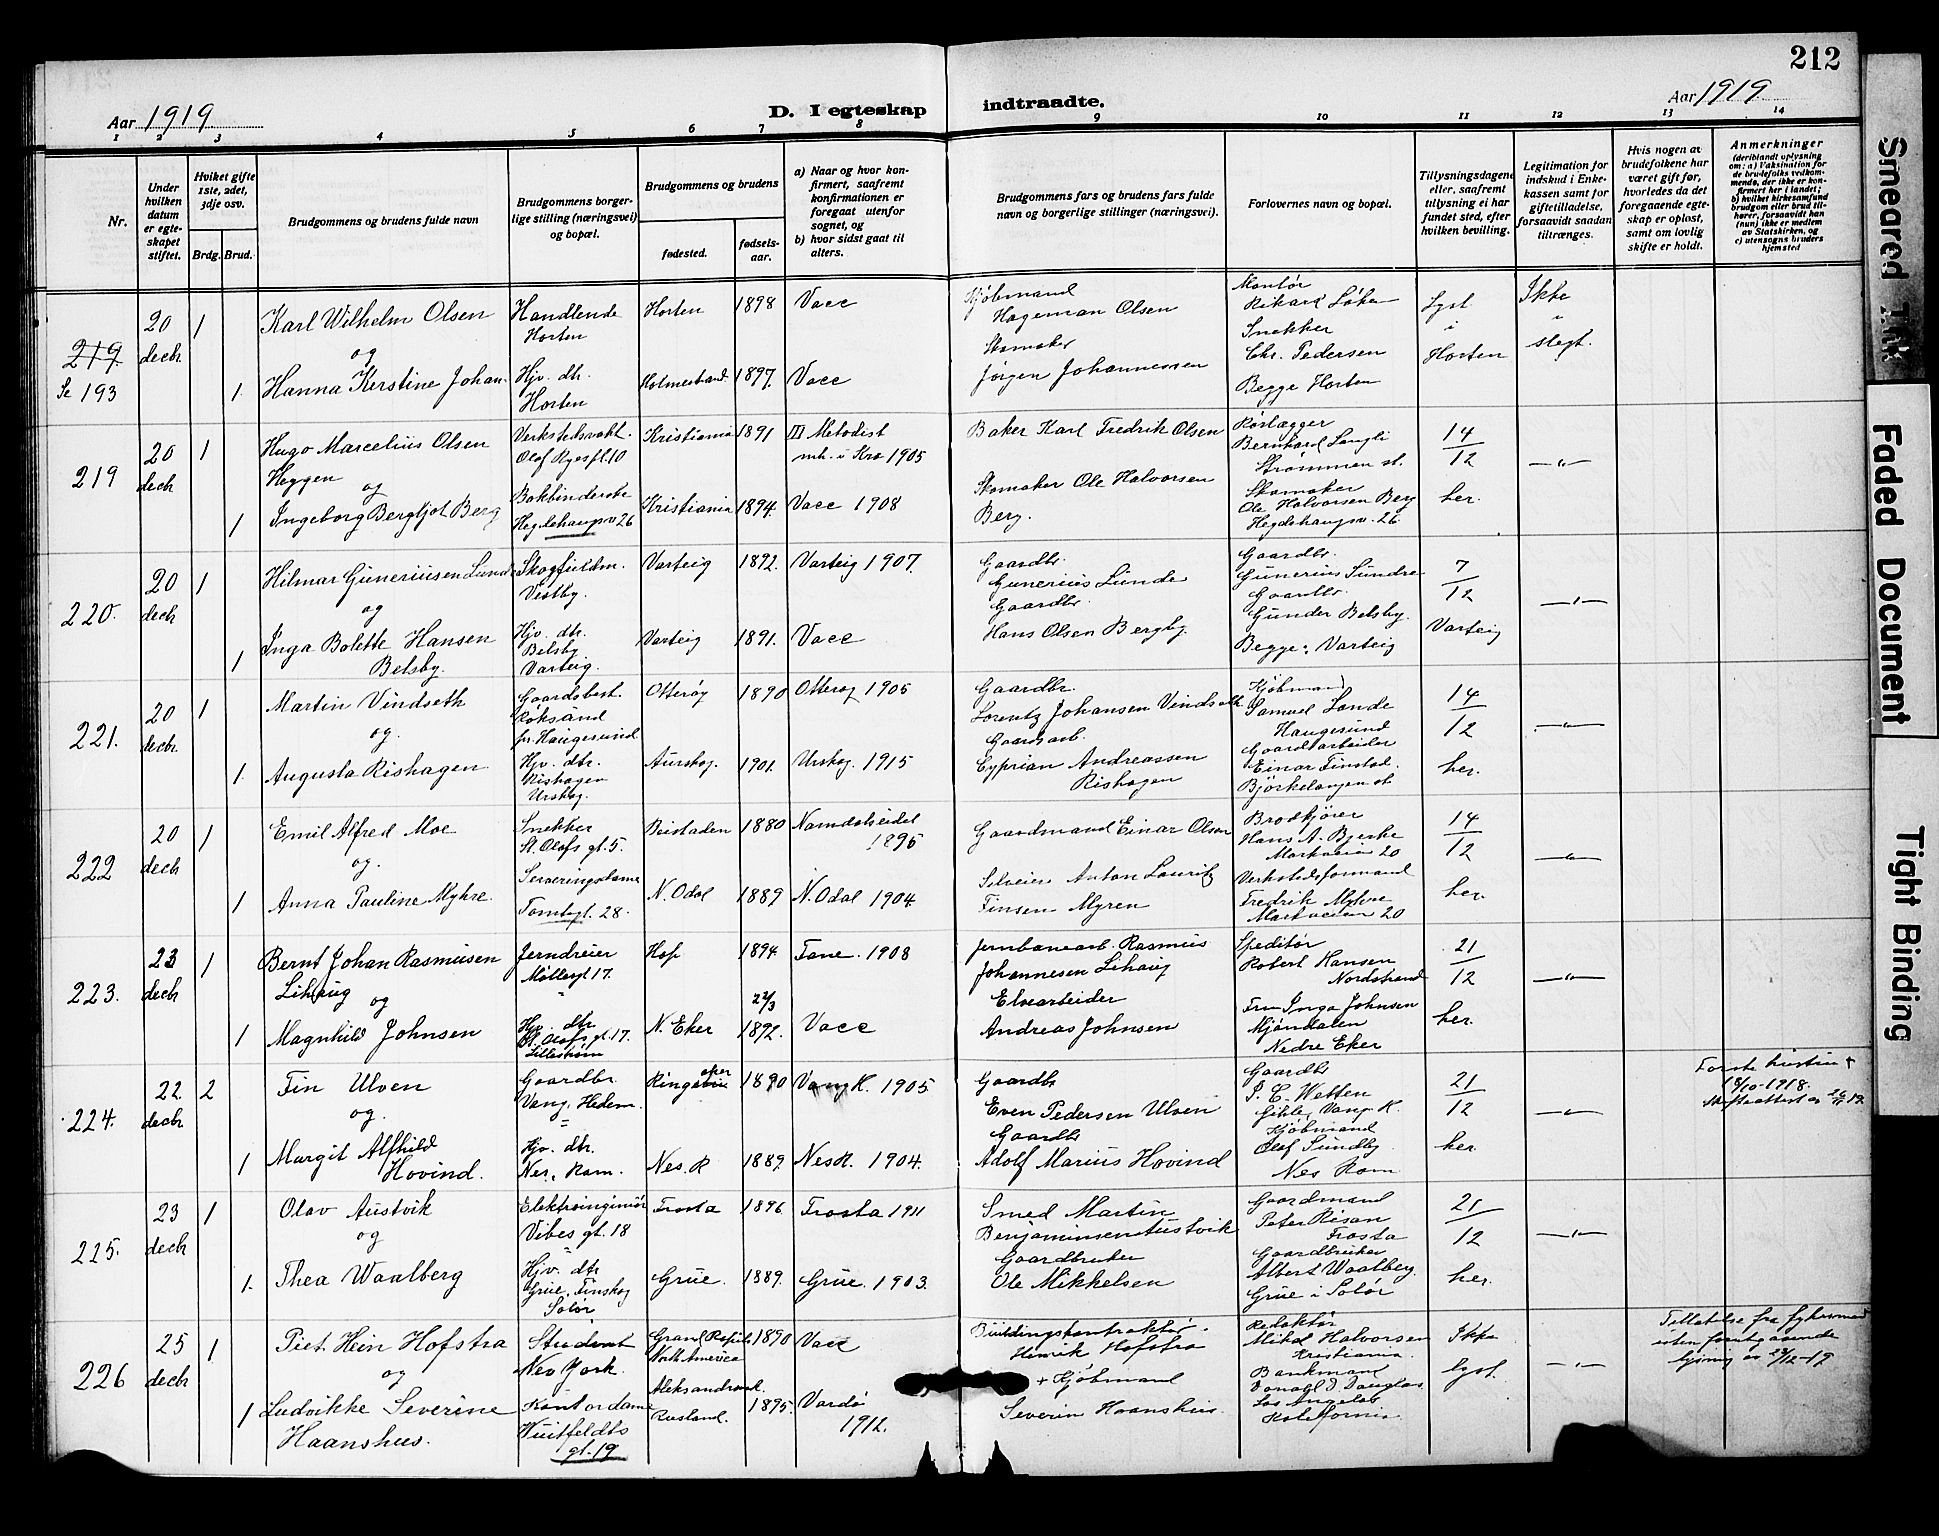 212
Aar 1919
D. I egteskap indtraadte.
Aar 1919
1 2 3 4 5 6 7 8 9 10 11 12 13 14
Nr.
Under hvilken datum er egte-skapet stiftet.
Hviket gifte 1ste, 2det, 3dje osv.
Brdg. Brud.
Brudgommens og brudens fulde navn
Brudgommens borger-lige stilling (næringsvei) og bopæl.
Brudgommens og brudens
fødested.
fødsels-aar.
a) Naar og hvor kon-firmert, saafremt konfirmationen er foregaat utenfor sognet, og
b) hvor sidst gaat til alters.
Brudgommens fars og brudens fars fulde navn og borgerlige stillinger (næringsvei).
Forlovernes navn og bopæl.
Tillysningsdagene eller, saafremt tillysning ei har fundet sted, efter hvilken bevilling.
Legitimation for indskud i Enke-kassen samt for giftetilladelse, forsaavidt saadan tiltrænges.
Hvis nogen av brudefolkene har været gift før, hvorledes da det foregaaende egte-skap er opløst, samt om lovlig skifte er holdt.
Anmerkninger
(deriblandt oplysning om: a) Vaksination for de brudefolks vedkom-mende, der ikke er kon-firmert her i landet; b) hvilket kirkesamfund brudgom eller brud til-hører, forsaavidt han (hun) ikke er medlem av Statskirken, og c) utensogns bruders hjemsted
219
Se 193
20 decbr
1
Karl Wilhelm Olsen
og
1. Hanna Kerstine Johan.
Handlende
Horten
Hjv. dtr.
Horten
Horten 1898 Vacc
Holmestrand 1897. Vacc
Kjøbmand
Hageman Olsen
Skomaker
Jørgen Johannessen
Montør
Rikard Løken
Snekker
Chr. Pedersen
Begge Horten
Lyst
i
Horten
Ikke
slegt.
219
20 decbr
1
Hugo Marcelius Olsen
Heggen
og
1 Ingeborg Bergljot Berg
Olaf Ryespl. 10
Hegdehaugsv 26
Kristiania 1891 III Metodist
mh. i Kra 1905
Kristiania 1894. Vacc 1908
Baker Karl Fredrik Olsen
Skomaker Ole Halvorsen
Berg.
Bernhard Langli
Strømmen st.
Skomaker
Ole Halvorsen Berg
Hegdehaugsv. 26.
14
12
her.
—"—
220.
20 decbr
1
Hilmar Guneriusen Lunde
og
1 Inga Bolette Hansen
Belsby.
Skogfuldm.
Vestby.
Hjv. dtr.
Belsby
Varteig.
Varteig 1892. Varteig 1907.
Varteig 1891. Vacc
Gaardbr.
Gunerius Lunde
Gaardbr.
Hans Olsen Bergby.
Gaardbr.
Gunerius Sundre
Gaardbr.
Gunder Belsby.
Begge: Varteig
7
12
Varteig
—"—
221.
20 decbr
1
Martin Vindseth
og.
1. Augusta Rishagen
Gaardsbest.
Røksund
pr. Haugesund.
Hjv. dtr.
Rishagen
Urskog.
Otterøy 1890 Otterøy 1905
Aurskog. 1901. Urskog. 1915
Gaardbr.
Lorentz Johansen Vindseth
Gaardsarb.
Cyprian Andreassen
Rishagen
Kjøbmand
Samuel Lande
Haugesund
Gaardarbeider
Einar Finstad.
Bjørkelangen st.
14
12
her.
—"—
222
20 decbr
1
Emil Alfred Moe
og.
1 Anna Pauline Myhre.
Snekker
St. Olafs gt. 5.
Serveringsdame
Tomtegt. 28.
Beistaden 1880 Namdalseidet
1895
N. Odal 1889 N. Odal 1904
Gaardmand Einar Olsen
Anton Lauritz
Finsen Myren
Brødkjører
Hans A. Bjerke
Markveien 20
Verkstedsformand
Fredrik Myhre
Markveien 20
14
12
her.
—"—
223.
23 decbr
1
Bernt Johan Rasmusen
Lihaug
og
1 Magnhild Johnsen
Jerndreier
Møllergt 17.
Hjv. dtr.
St. Olafs gt. 17.
Lillestrøm
Hop 1894 Fane. 1908
N. Eker 22/3 1892. Vacc
Jernbanearb. Rasmus
Johannesen Lihaug
Elvearbeider
Andreas Johnsen
Speditør
Robert Hansen
Nordstrand
Fru Inga Johnsen
Mjøndalen
Nedre Eker
21
12
her.
—"—
224.
22. decbr
2
Fin Ulven
og.
1 Margit Alfhild
Hovind.
Gaardbr.
Vang, Hedem.
Hjv. dtr.
Nes, Rom.
Ringsaker 1890 Vang H. 1905
Nes. R 1889. Nes R. 1904.
Gaardbr
Even Pedersen Ulven
Gaardbr
Adolf Marius Hovind
Gaardbr
P. C. Wetten
Vang H.
Kjøbmand
Olaf Sundby
Nes Rom
21
12
her.
—"—
Første hustru +
18/10-1918.
Skifteattest av
225.
23 decbr
1
Olav Austvik
og
1. Thea Waalberg
Elektroingeniør
Vibes gt. 18
Hjv. dtr
Grue, Finskog
Solør
Frosta 1896 Frosta 1911
Grue. 1889. Grue. 1903.
Smed Martin
Benjaminsen Austvik
Gaardbruker
Ole Mikkelsen
Gaardmand
Peter Risan
Frosta
Gaardbruker
Albert Waalberg.
Grue i Solør
21
12
her.
—"—
226
25 decbr
1
Piet Hein Hofstra
og
1 Ludvikke Severine
Haanshus.
Student
New York.
Kontordame
Huitfeldts
gt. 19
Grand Rapids 1890 Vacc
North America
Aleksandrovsk. 1895. Vardø
Rusland. 1912.
Buildingskontraktør.
Henrik Hofstra
+ Kjøbmand
Severin Haanshus.
Redaktør
Mikal Halvorsen
Kristiania.
Bankmand
Donald D. Douglas
Los Angelos
Kalifornia
Ikke
lyst.
—"—
Tillatelse fra fylkesmand
uten forutgaaende
lysning av 24/12-19
Smeared Ink
Faded Document
Tight Binding